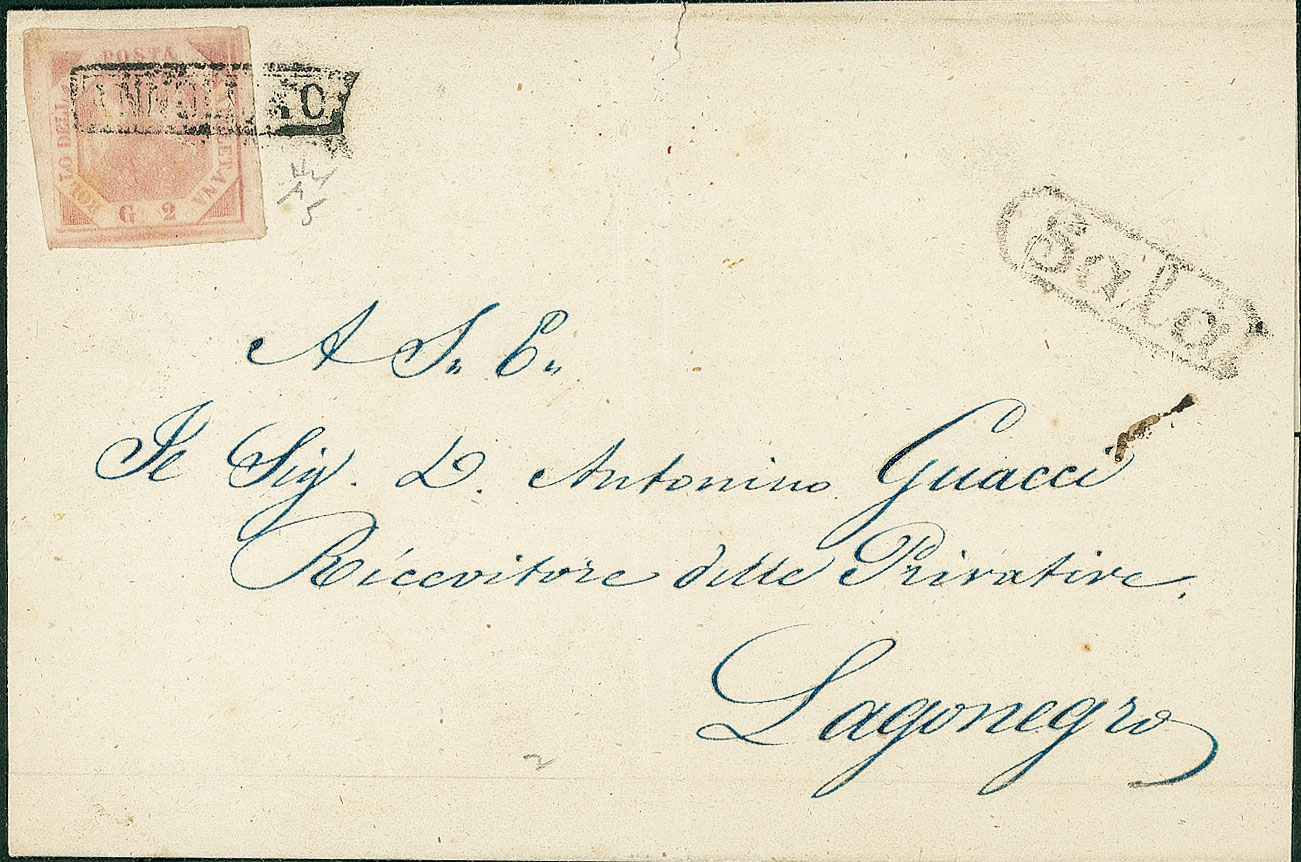 POSTA
NAPOLETANA
BOLLO DELLA
G. 2
ANNULLATO
Sala
A S. E.
Il Sig. D. Antonino Guacci
Ricevitore delle Privative.
Lagonegro